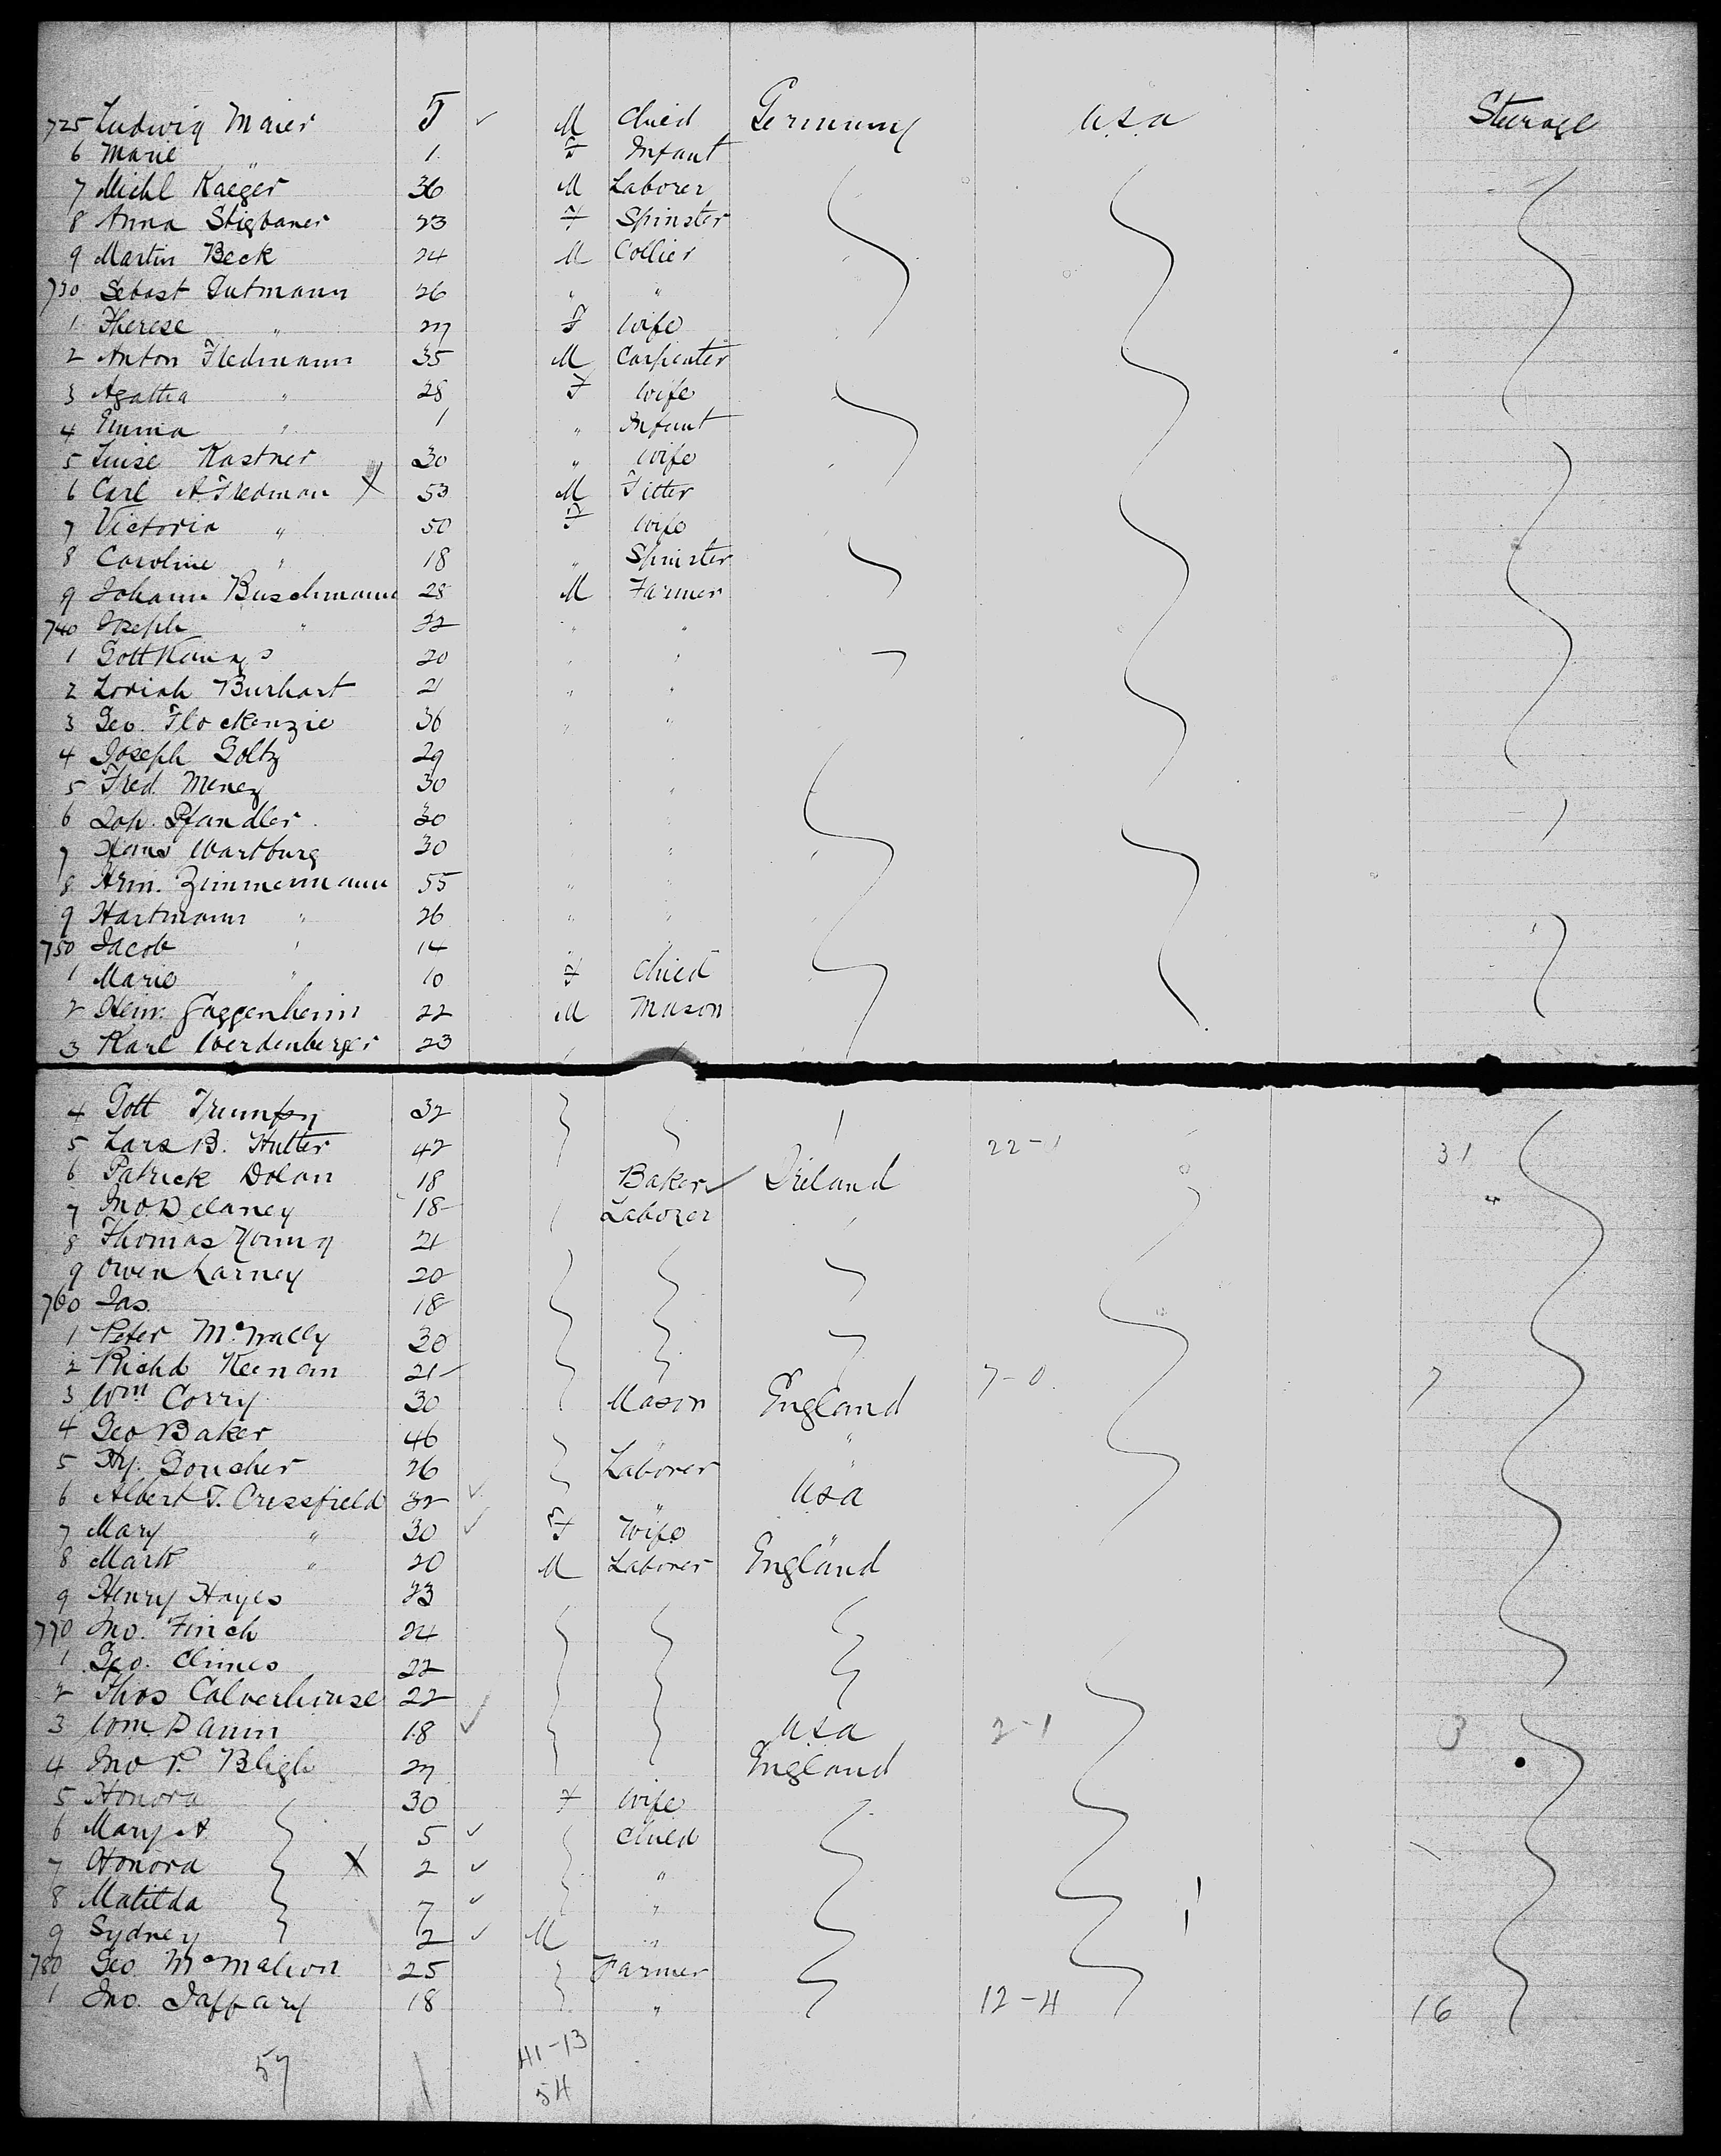 725 Ludwig Maier 5 ✓ M Child Germany USA Steerage
6 Marie " 1 F Infant
7 Michl Kaeger 36 M Laborer
8 Anna Stigbauer 23 F Spinster
9 Martin Beck 24 M Collier
730 Sebast Gutmann 26 " "
1 Therese " 27 F Wife
2 Anton Fledmann 35 M Carpenter
3 Agatha " 28 F Wife
4 Emma " 1 " Infant
5 Luise Kastner 30 " Wife
6 Carl A. Fredman X 53 M Fitter
7 Victoria " 50 F Wife
8 Caroline " 18 " Spinster
9 Johann Buschmann 28 M Farmer
740 Joseph " 32 " "
1 Gott 20 " "
2 Burhart 21 " "
3 Geo. Flockenzie 36 " "
4 Joseph Goltz 29
5 Fred. Menez 30 "
6 Joh. Pfandler 30
7 Hans Wartburg 30 "
8 Hrm. Zimmermann 55 "
9 Hartmann " 26 " "
750 Jacob " 14 "
1 Marie " 10 F Child
2 Hein. Guggenheim 22 M Mason
3 Karl Werdenberger 23 " "
4 Gott Trumpy 32
5 Lars B. Hutter 42 22-1 31
6 Patrick Dolan 18 Baker ✓ Ireland
7 Jno. Delaney 18 Laborer "
8 Thomas Young 21
9 Owen Larney 20
760 Jas. 18
1 Peter McNally 30
2 Richd Keenan 21 7-0 7
3 Wm Corry 30 Mason England
4 Geo Baker 46 " "
5 Hy. Goucher 26 Laborer "
6 Albert T. Crissfield 32 ✓ " USA
7 Mary " 30 ✓ F Wife "
8 Mark " 20 M Laborer England
9 Henry Hayes 23
770 Jno. Finch 24
1 Geo. Climes 22
2 Thos Calverhouse 22
3 Wm. Dann 18 ✓ USA 2-1 3
4 Jno P. Bligh 27 England
5 Honora 30 F Wife
6 Mary A 5 ✓ Child
7 Honora X 2 ✓ "
8 Matilda 7 ✓ "
9 Sydney ✓ M "
780 Geo. McMahon 25 Farmer
1 Jno. Jaffary 18 " 12-4 16
57 41-13
54